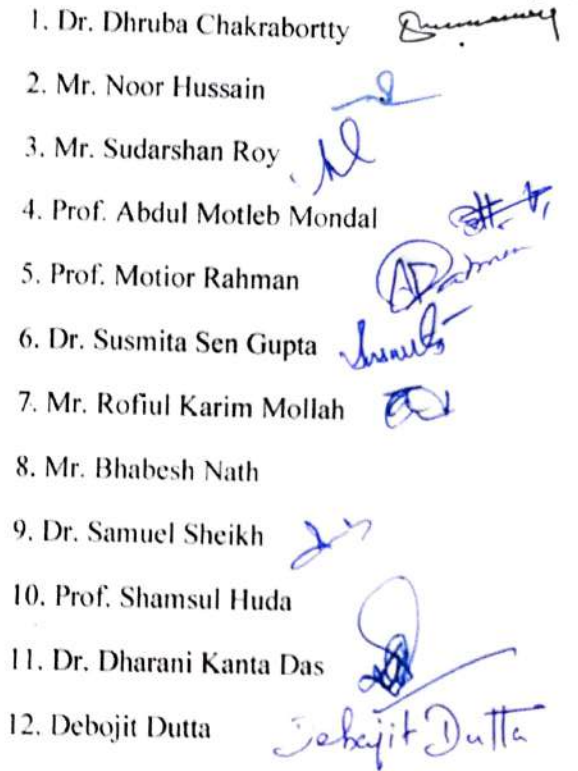 1. Dr. Dhruba Chakrabortty
2. Mr. Noor Hussain
3. Mr. Sudarshan Roy
4. Prof. Abdul Motleb Mondal
5. Prof. Motior Rahman
6. Dr. Susmita Sen Gupta
7. Mr. Rofiul Karim Mollah
8. Mr. Bhabesh Nath
9. Dr. Samuel Sheikh
10. Prof. Shamsul Huda
11. Dr. Dharani Kanta Das
12. Debojit Dutta Debajit Dutta